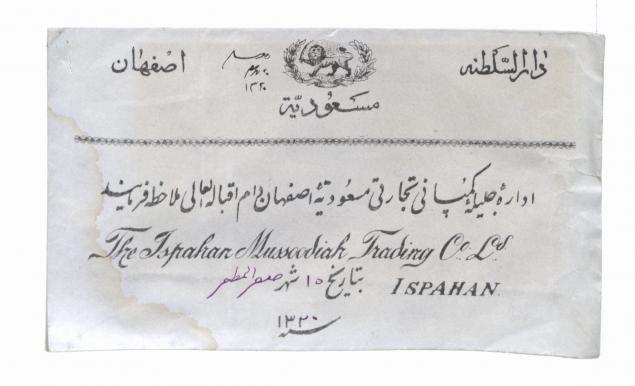 دارالسلطنه اصفهان
۱۳۲۰
مسعودیّة
ادارهٔ جلیلهٔ کمپانی تجارتی مسعودیّهٔ اصفهان دام اقباله العالی ملاحظه فرمایند
The Ispahan Mussoodiah Trading Co. Ld.
بتاریخ ۱۵ شهر صفر المظفر
ISPAHAN.
سنه ۱۳۲۰